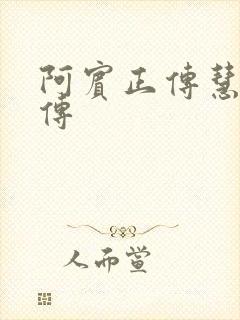 阿賓正傳慧
傳
人而萱